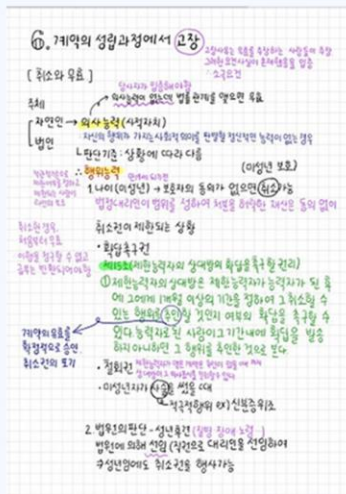 6. 계약의 성립과정에서 고장
[취소와 무효]
당사자가 입증해야함
의사능력이 없는데 법률관계를 맺으면 무효
주체
자연인 → 의사능력 (사적자치)
법인
자신의 행위가 가지는 사회적의미를 판별할 정신적인 능력이 없는 경우
판단기준 : 상황에 따라 다름
∴ 행위능력
(미성년 보호)
1. 나이 (미성년) → 보호자의 동의가 없으면 취소가능
법정대리인이 범위를 정하여 처분을 허락한 재산은 동의 없이
취소권이 제한되는 상황
취소한 경우,
처음부터 무효
이행을 청구할 수 없고
급부는 반환되어야함
• 확답촉구권
제15조(제한능력자의 상대방의 확답을 촉구할 권리)
① 제한능력자의 상대방은 제한능력자가 능력자가 된 후
에 그에게 1개월 이상의 기간을 정하여 그 취소할 수
있는 행위를 추인할 것인지 여부의 확답을 촉구할 수
있다. 능력자로 된 사람이 그 기간내에 확답을 발송
하지 아니하면 그 행위를 추인한 것으로 본다.
계약의 유효를
확정적으로 승인,
취소권의 포기
• 철회권
• 미성년자가 사술을 썼을 때
적극적행위 ex) 신분증위조
2. 법원의 판단 - 성년후견 (질병 장애 노령)
법원에 의해 선임 (직권으로 대리인을 선임하여
수성년임에도 취소권을 행사가능